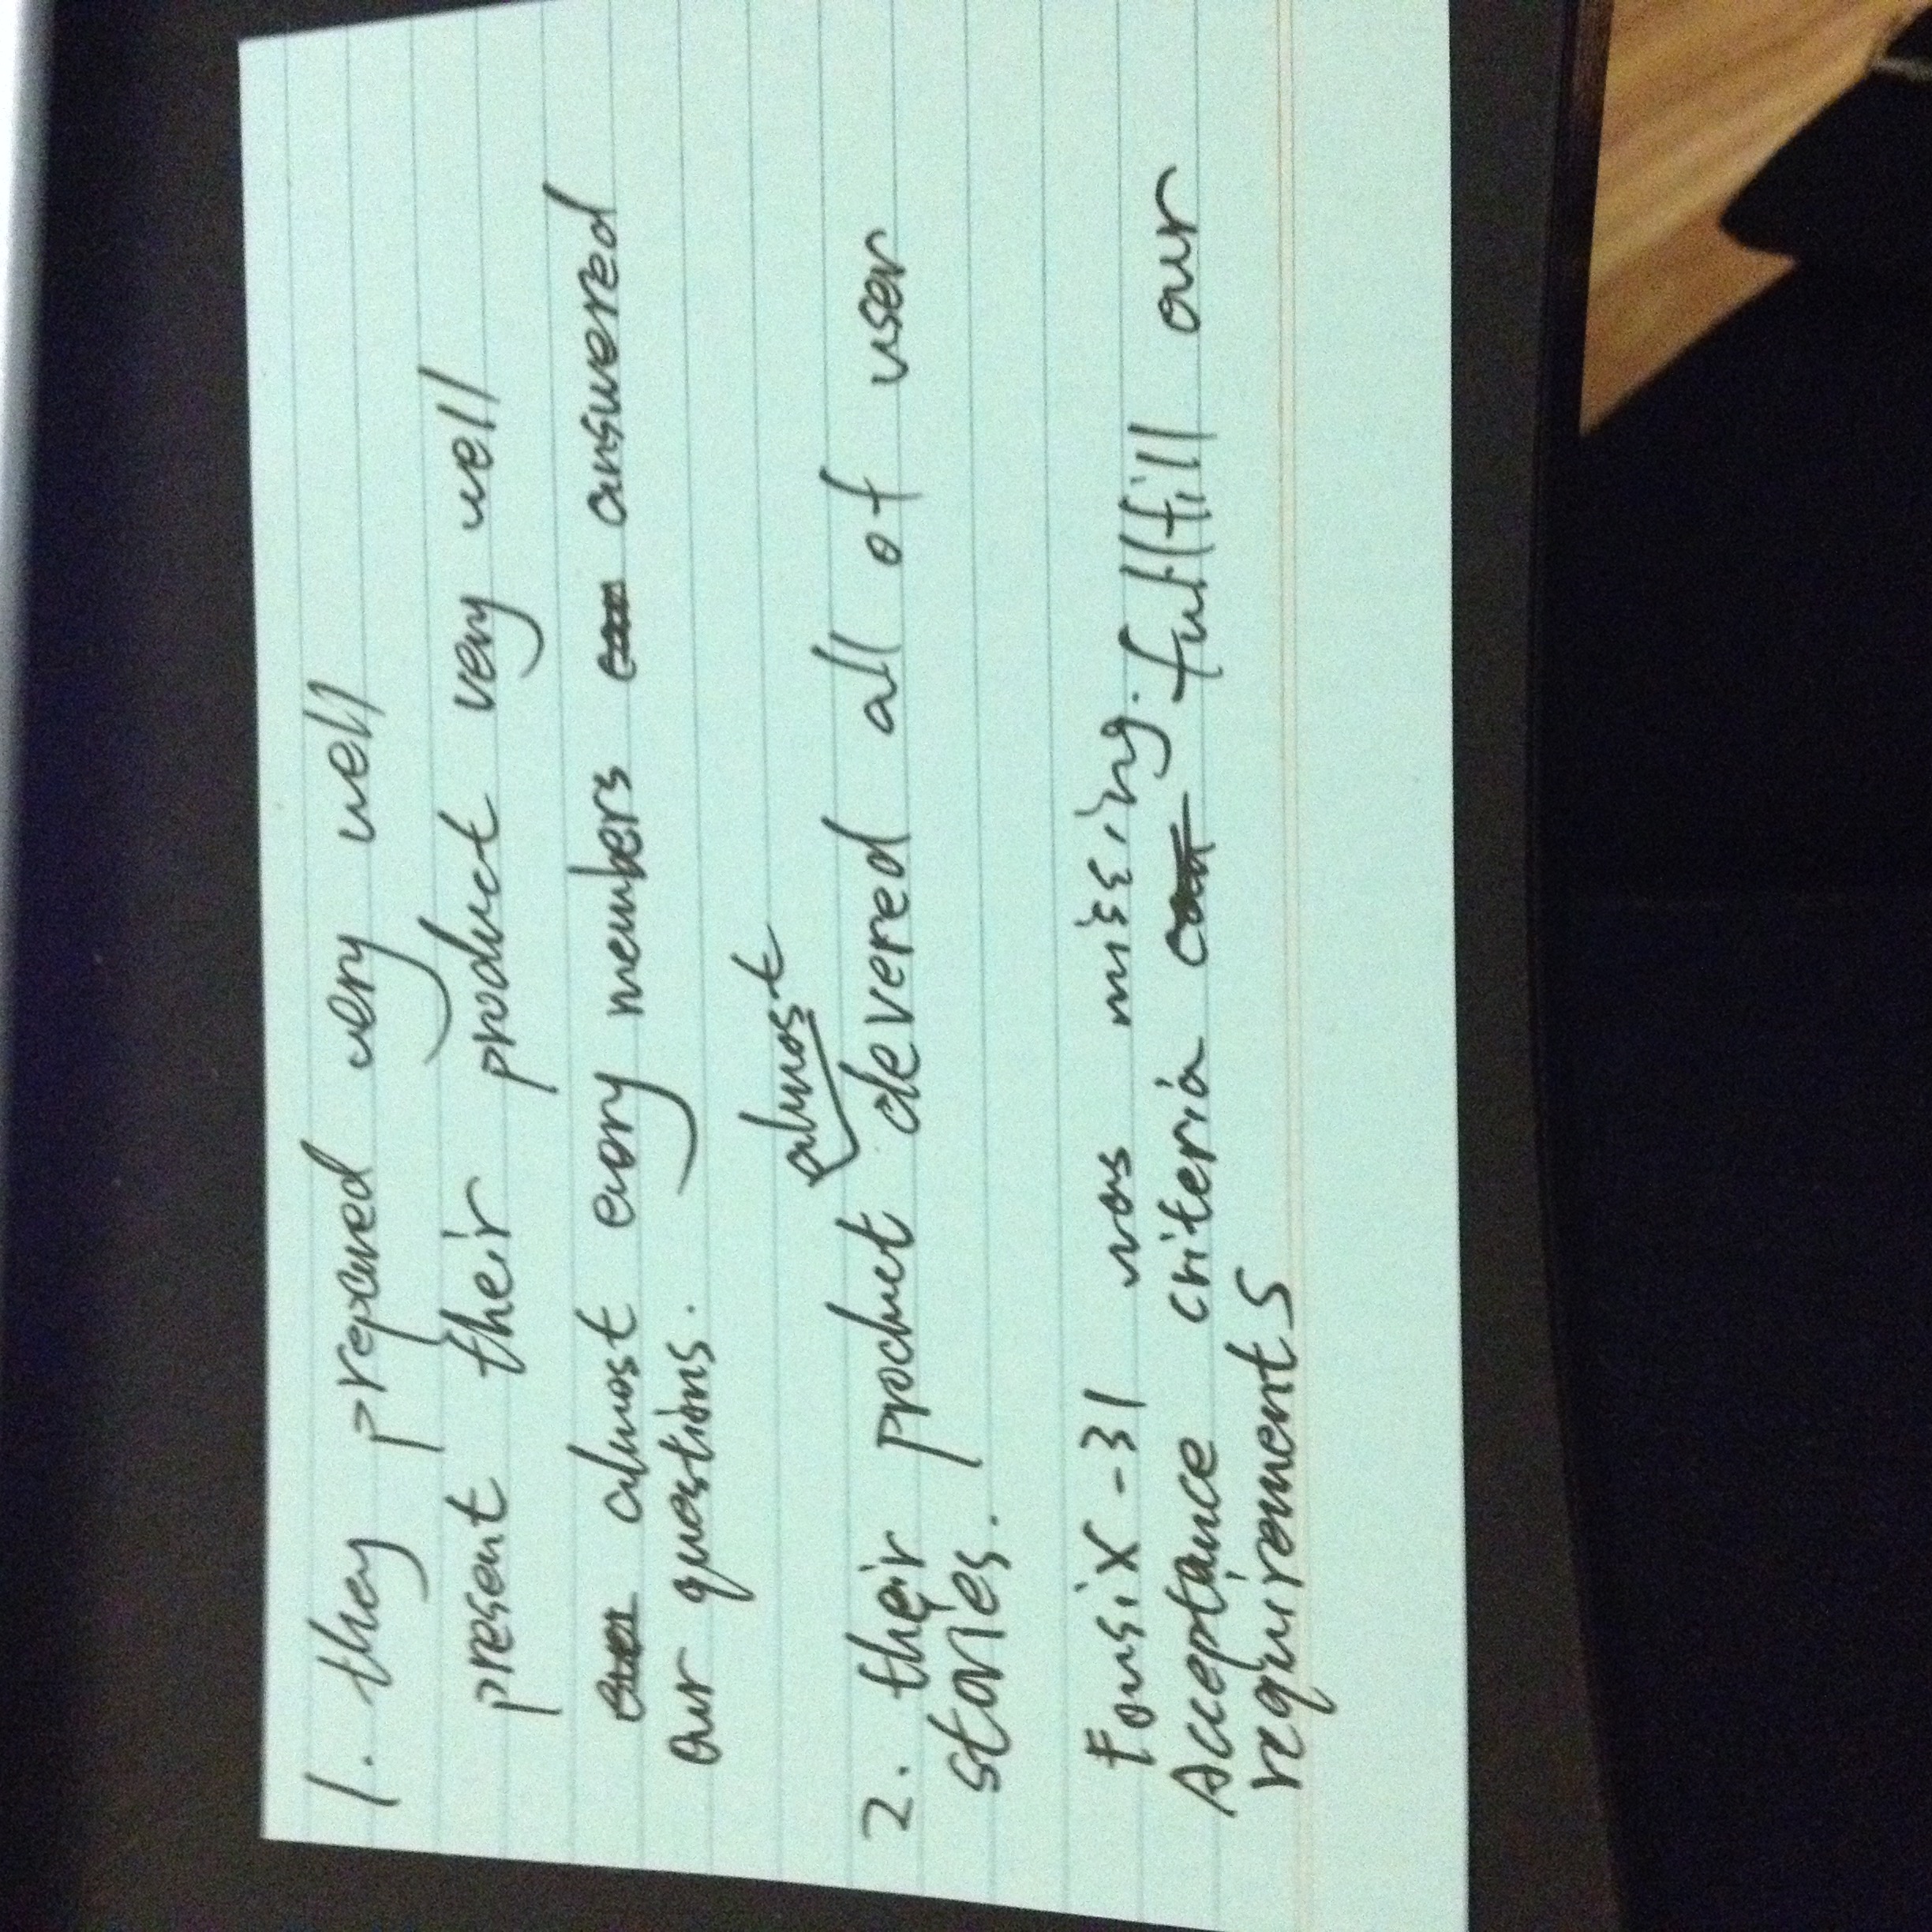 1. they prepared very well
present their product very well
almost every members answered
our questions.
almost
2. their product devered all of user
stories.
Fousix-31 was missing.
Acceptance criteria fullfill our
requirements